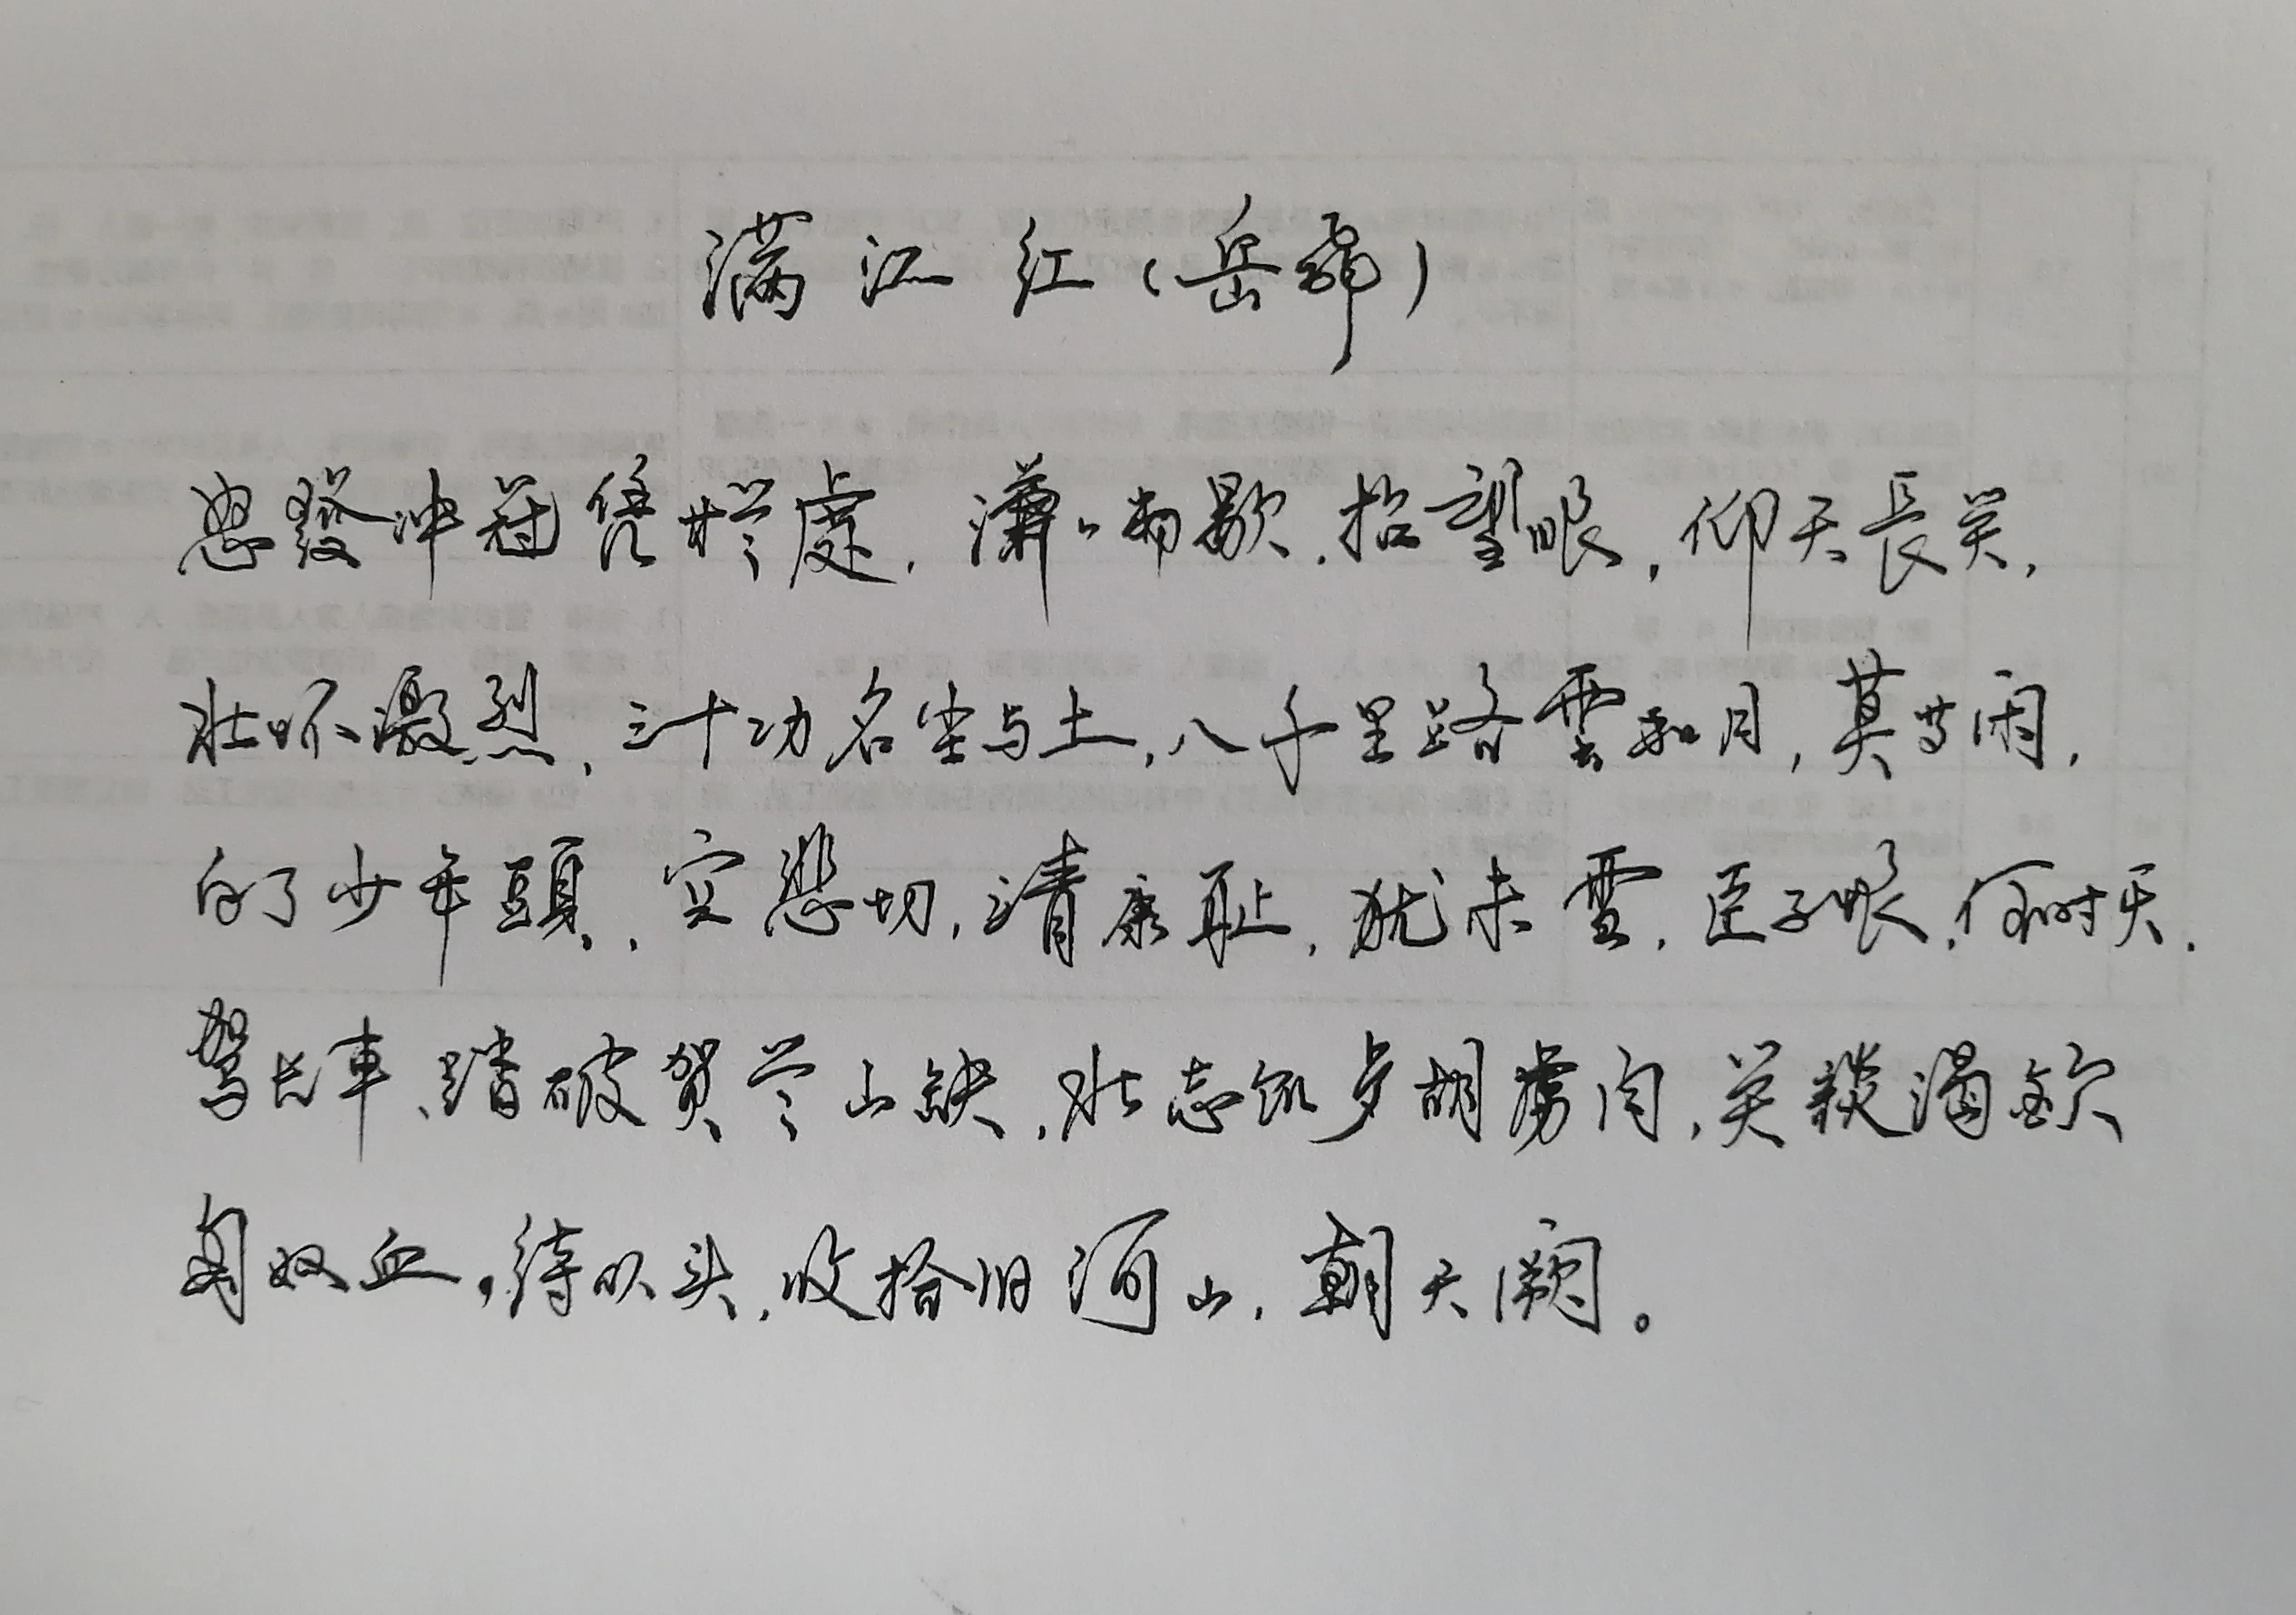 满江红(岳飛)
怒髮冲冠凭栏處,瀟々雨歇.抬望眼,仰天長笑,
壮怀激烈、三十功名尘与土,八千里路雲和月,莫等闲,
白了少年頭,空悲切,靖康耻,犹未雪,臣子恨,何时灭.
驾长車、踏破贺兰山缺,壮志饥歺胡虏肉,笑谈渴飲
匈奴血,待从头,收拾旧河山,朝天阙。